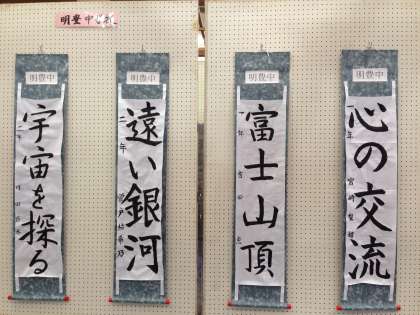 明豊中学校
明豊中
心の交流
一年
明豊中
富士山頂
明豊中
遠い銀河
二年
明豊中
宇宙を探る